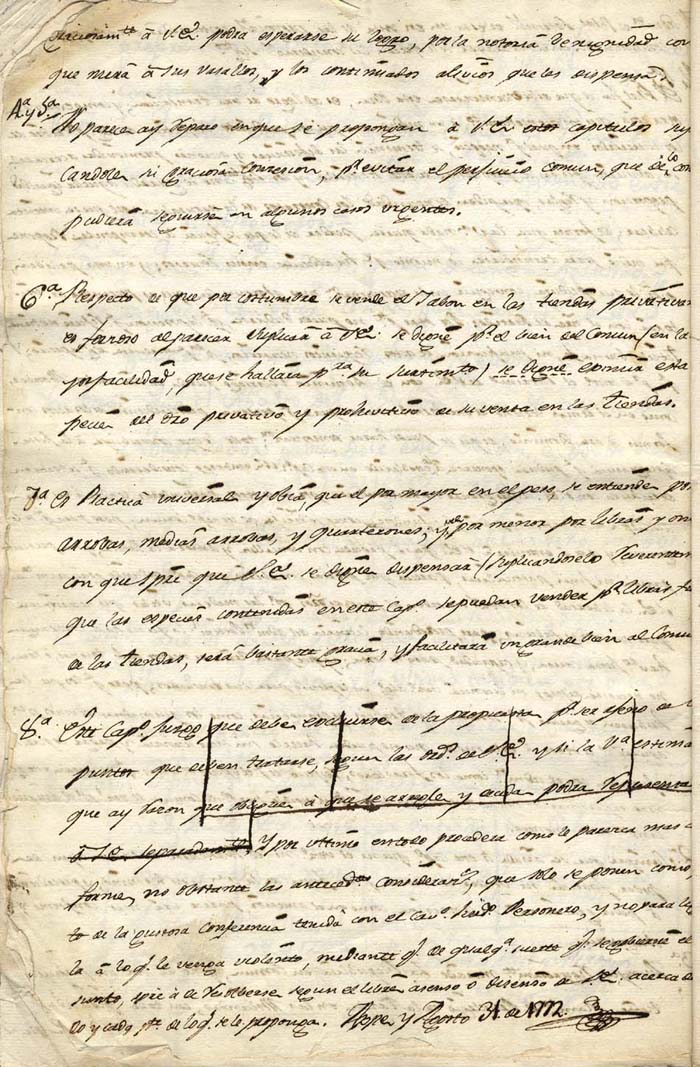 à S.E. podra esperarse su logro, por la notoria benignidad con
que mira à sus vasallos, y los continuados alivios que les dispensa.
4ª y 5ª
No parece ay reparo en que se propongan à S.E. estos capitulos
candole su graciosa concesion, pª evitar el perjuicio comun, que de lo con
pudiera seguirse en algunos casos urgentes.
6ª Respecto a que por costumbre se vende el Jabon en las tiendas privativas
es forzoso al parecer suplicar à S.E. se digne pr el bien del Comun (en la
yor facilidad, que se hallara pra su surtimto) se digne eximir esta
pecie del dro privativo y prohivitivo de su venta en las tiendas.
7ª Es Practica universal y obia, que el por mayor en el peso, se entiende por
arrobas, medias arrobas, y quarterones, y el por menor por libras y on
con que spre que S.E. se digne dispensar (suplicandoselo
que las especies contenidas en este Capo se puedan vender pr libras
de las tiendas, será bastante gracia, y facilitará un grande bien al Comun
8ª Este Capo juzgo que debe excluirse de la propuesta pr ser ageno de
puntos que deben tratarse, segun las ords de S.E. y si la Va estima
que ay razon que obligue à que se arregle y acuda podra representa
à S.E. separadamte Y por ultimo en todo procederá como lo parezca mas
forme, no obstante las antecedtes consideracs, que solo se ponen como
to de la gustosa conferencia tenida con el Cavo Sindo Personero, y no para
la à lo q. le venga violento, mediante q. de qualqa suerte q. se govierne el
sunto, que à de resolberse segun el libre asenso ò disenso de S.E. acerca de
lo y cada pte de lo q. se le proponga. y Agosto 31 de 1772.